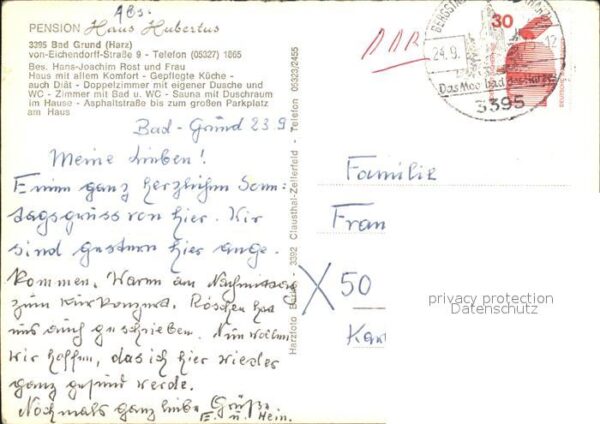 Abs.
PENSION Haus Hubertus
3395 Bad Grund (Harz)
von-Eichendorff-Straße 9 - Telefon (05327) 1865
Bes. Hans-Joachim Rost und Frau
Haus mit allem Komfort - Gepflegte Küche -
auch Diät - Doppelzimmer mit eigener Dusche und
WC - Zimmer mit Bad u. WC - Sauna mit Duschraum
im Hause - Asphaltstraße bis zum großen Parkplatz
am Haus
Bad-Grund 23.9
Meine Lieben!
Einen ganz herzlichen Sonn-
tagsgruss von hier. Wir
sind gestern hier ange-
kommen. Waren am Nachmittag
zum Kurkonzert. Röschen hat
uns auch geschrieben. Nun wollen
wir hoffen, das ich hier wieder
ganz gesund werde.
Nochmals ganz liebe Grüße
E. u. Hein.
Harzfoto 3392 Clausthal-Zellerfeld - Telefon 05323/2455
30
24.9.
12
Das Moorbad des Harzes
3395
Familie
Fran
X 50
Kar
privacy protection
Datenschutz